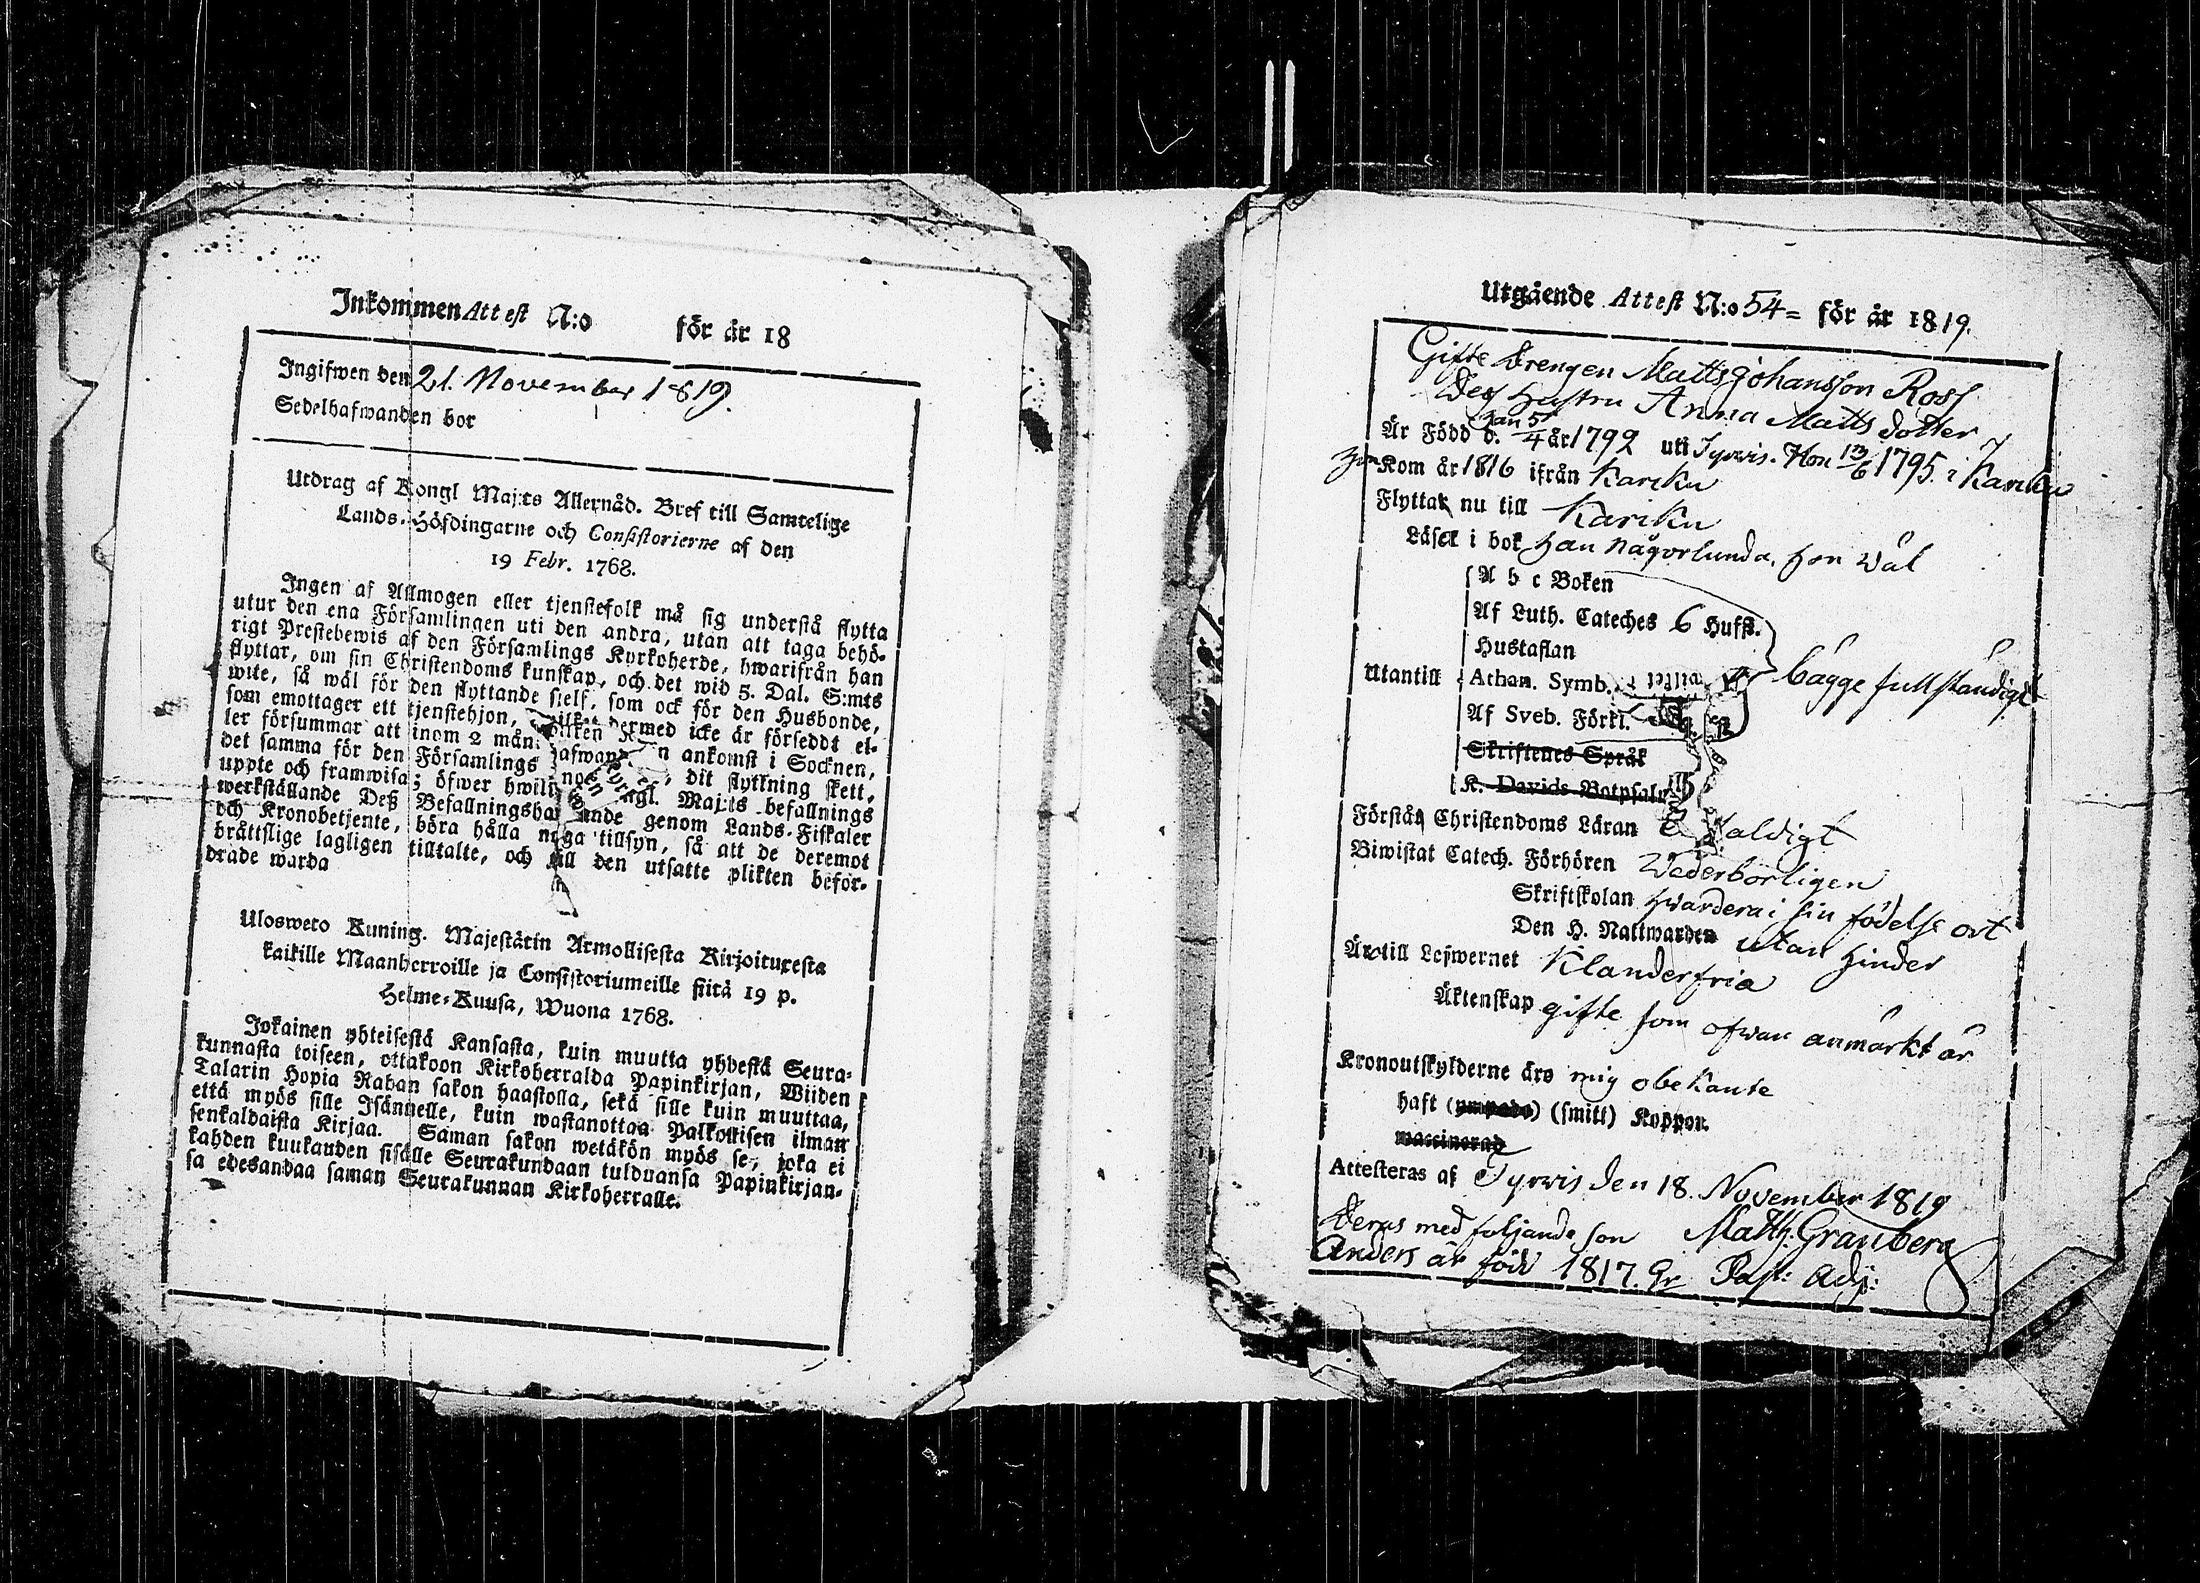 Inkommen Attest N:o för år 18
Ingifwen den 21. November 1819.
Sedelhafwanden bor
Utdrag af Kongl Maj:ts Allernåd. Bref till Samtelige
Lands-Höfdingarne och Consistorierne af den
19 Febr. 1768.
Ingen af Allmogen eller tjenstefolk må sig understå flytta
utur den ena Församlingen uti den andra, utan att taga behö-
rigt Prestebewis af den Församlings Kyrkoherde, hwarifrån han
flyttar, om sin Christendoms kunskap, och det wid 5. Dal. S:mts
wite, så wäl för den flyttande sielf, som ock för den Husbonde,
som emottager ett tjenstehjon, hwilket dermed icke är förseddt el-
ler försummar att inom 2 mån: ankomst i Socknen,
det samma för den Församlings dit flyttning skett,
uppte och framwisa; öfwer hwilken Kongl. Maj:ts befallnings
werkställande Deß Befallningshafwande genom Lands-Fiskaler
och Kronobetjente, böra hålla noga tillsyn, så att de deremot
bråttslige lagligen tilltalte, och till den utsatte plikten befor-
drade warda
Uloswero Kuning. Majestätin Armollisesta Kirjoituxesta
kaikille Maanherroille ja Consistoriumeille siitä 19 p.
Helme-Kuusa, Wuona 1768.
Jokainen yhteisestä Kansasta, kuin muutta yhdestä Seura-
kunnasta toiseen, ottakoon Kirkoherralda Papinkirjan, Wiiden
Talarin Hopia Rahan sakon haastolla, sekä sille kuin muuttaa,
että myös sille Isännelle, kuin wastanottaa Palkollisen ilman
senkaldaista Kirjaa. Saman sakon wetäkön myös se, joka ei
kahden kuukauden sisälle Seurakundaan tulduansa Papinkirjan-
sa edesandaa saman Seurakunnan Kirkoherralle.
Utgående Attest N:o 54 = för år 1819.
Gifte Drengen Matts Johansson Ross
Des Hustru Anna Matts dotter
Är Född d. han 5/4 år 1792 uti Tyrwis. Hon 13/6 1795. i Karcku
Kom år 1816 ifrån Karcku
Flyttar nu till Karcku
Läser i bok han någorlunda, hon wäl
A b c Boken
Af Luth. Cateches 6 Hufst.
Hustaflan
Utantill Athan. Symb. bägge fullständigt
Af Sveb. Förkl.
Skriftenes Språk
K. Davids Botpsalm
Förstår Christendoms Läran
Biwistat Catech. Förhören Wederbörligen
Skriftskolan hwardera i sin födelse ort
Den H. Nattwarden utan hinder
Äro till Lefwernet Klanderfria
Äktenskap gifte som ofwan anmärkt är
Kronoutskylderne äro mig obekante
haft (ympade) (smitt) Koppor.
waccinerad
Attesteras af Tyrwis den 18. November 1819
Deras medföljande son Matth: Granberg
Anders är född 1817. Past: Adj: